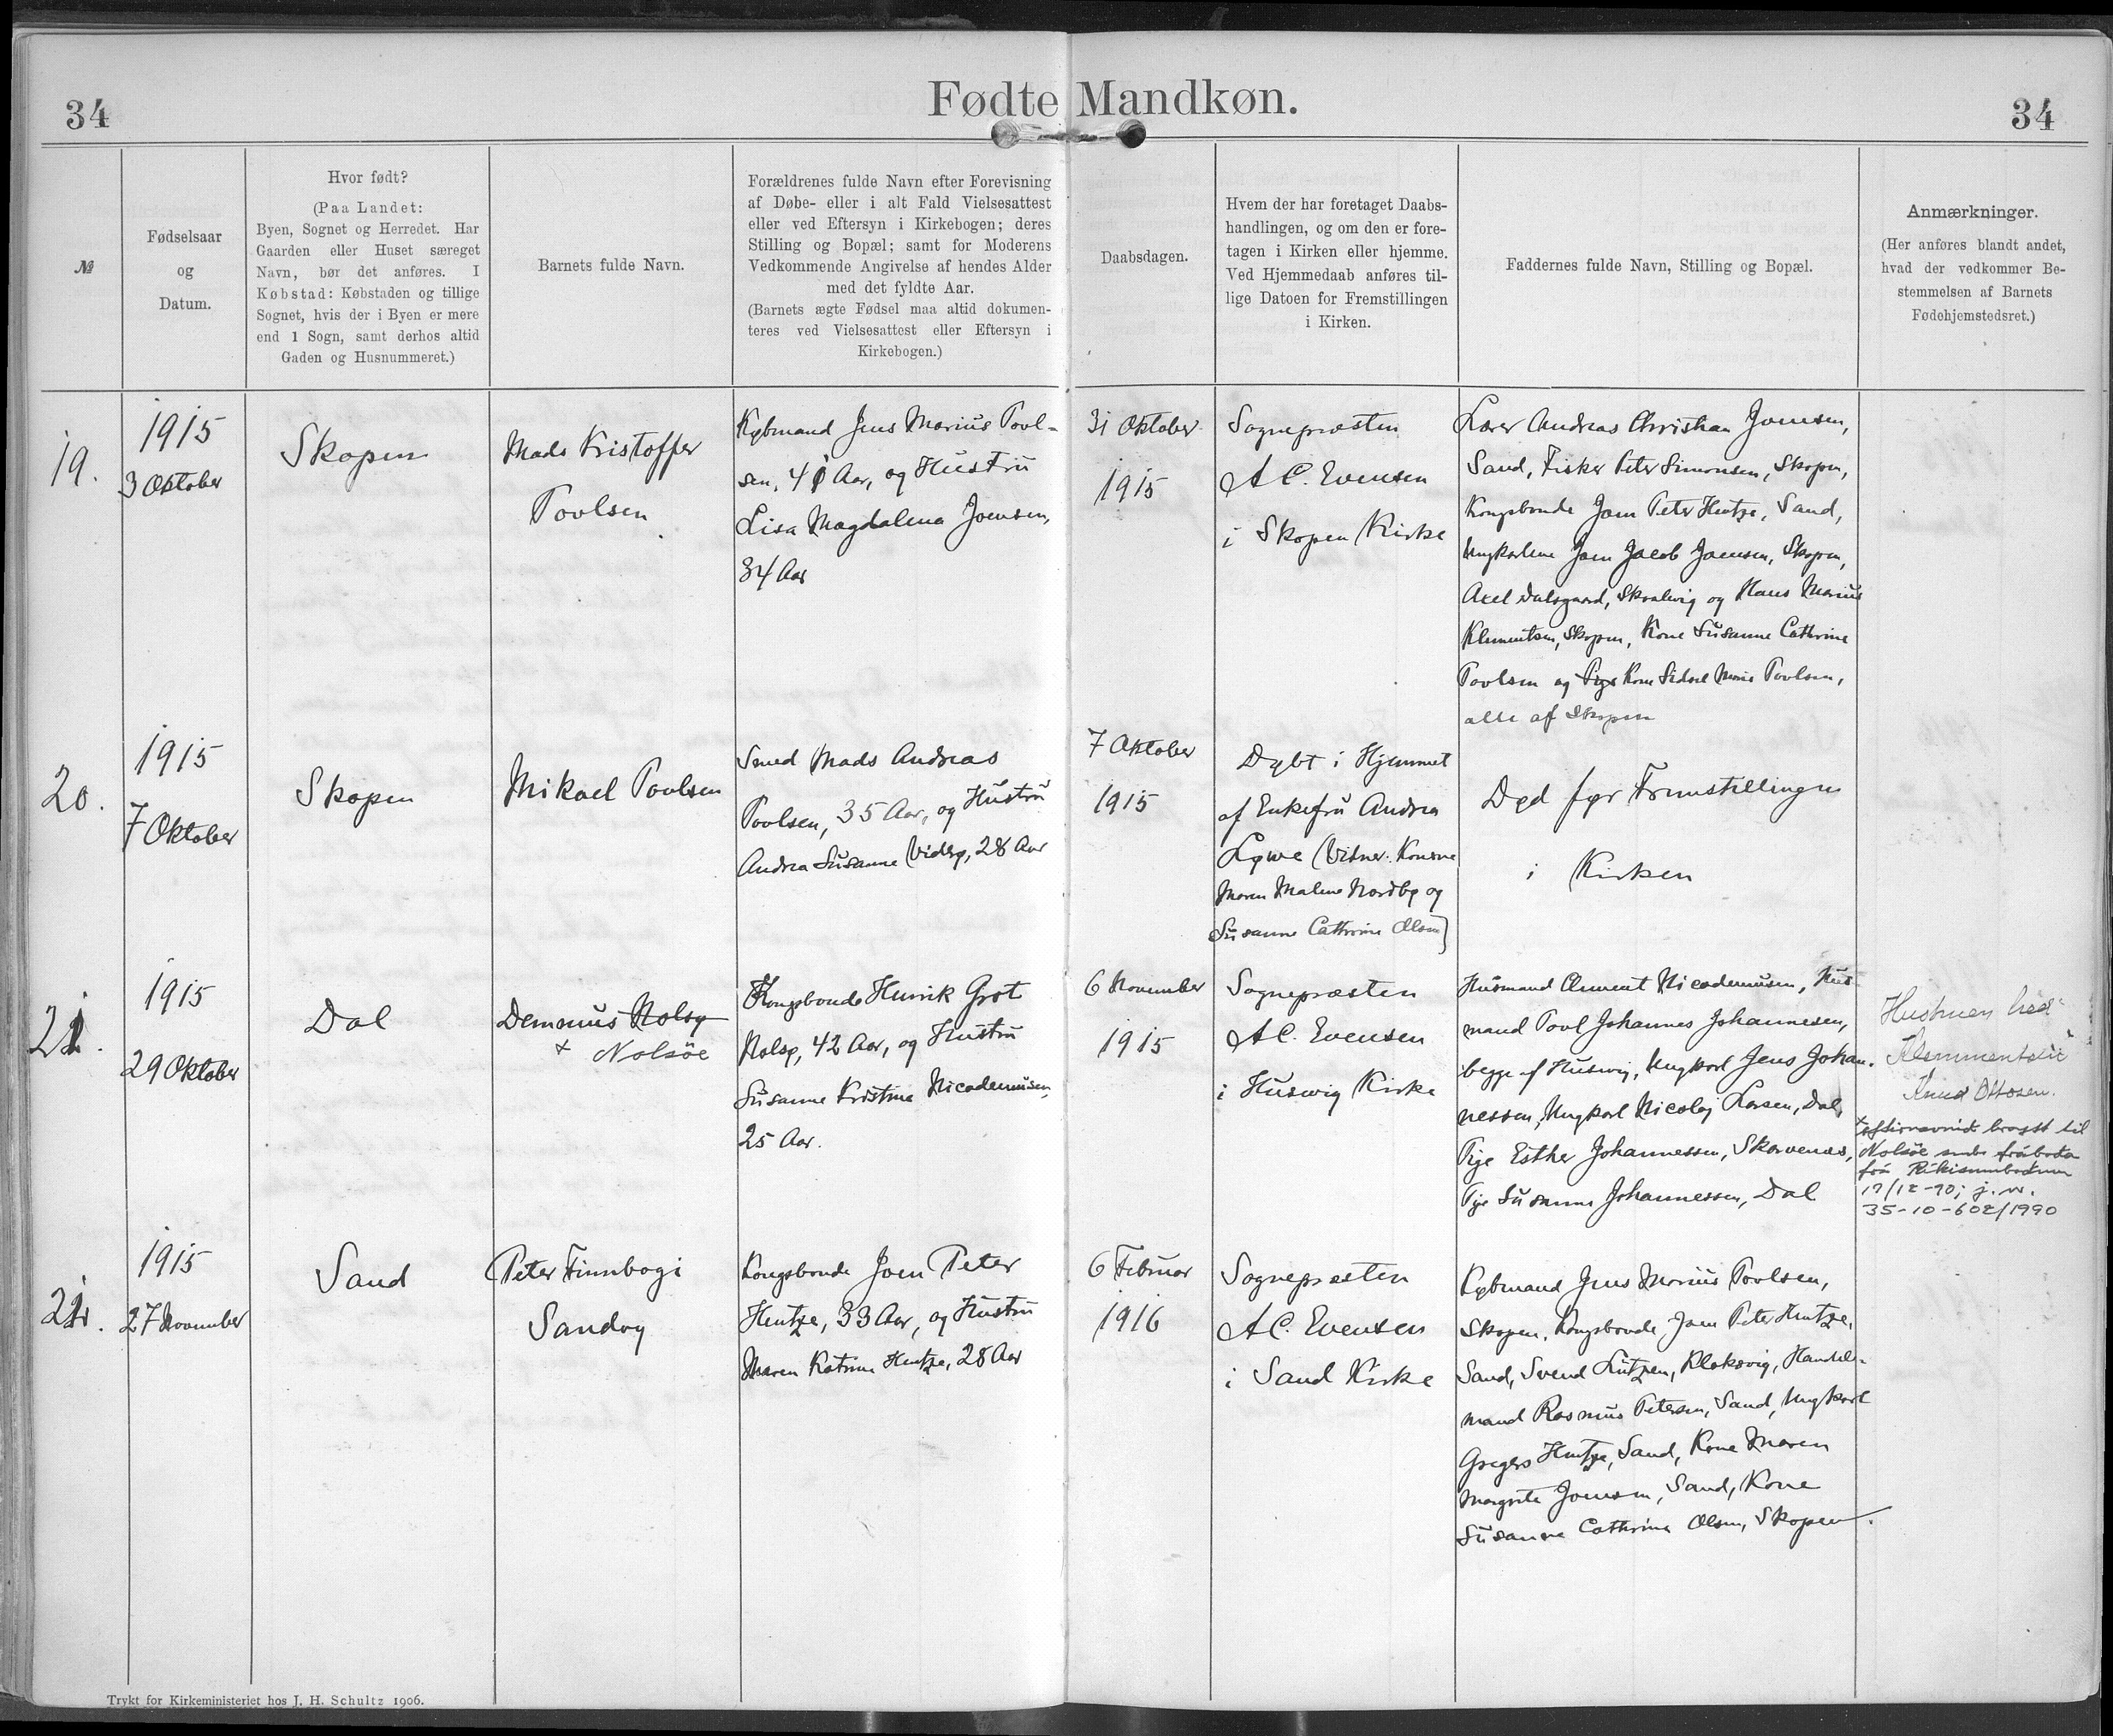 34
Fødte Mandkøn.
34
№
Fødselsaar
og
Datum.
Hvor født?
(Paa Landet:
Byen, Sognet og Herredet. Har
Gaarden eller Huset særeget
Navn, bør det anføres. I
Købstad: Købstaden og tillige
Sognet, hvis der i Byen er mere
end 1 Sogn, samt derhos altid
Gaden og Husnummeret.)
Barnets fulde Navn.
Forældrenes fulde Navn efter Forevisning
af Døbe- eller i alt Fald Vielsesattest
eller ved Eftersyn i Kirkebogen; deres
Stilling og Bopæl; samt for Moderens
Vedkommende Angivelse af hendes Alder
med det fyldte Aar.
(Barnets ægte Fødsel maa altid dokumen-
teres ved Vielsesattest eller Eftersyn i
Kirkebogen.)
Daabsdagen.
Hvem der har foretaget Daabs-
handlingen, og om den er fore-
tagen i Kirken eller hjemme.
Ved Hjemmedaab anføres til-
lige Datoen for Fremstillingen
i Kirken.
Faddernes fulde Navn, Stilling og Bopæl.
Anmærkninger.
(Her anføres blandt andet,
hvad der vedkommer Be-
stemmelsen af Barnets
Fødehjemstedsret.)
19.
1915
3 Oktober
Skopen
Mads Kristoffer
Poulsen
Købmand Jens Marius Poul-
sen, 41 Aar, og Hustru
Lisa Magdalena Joensen,
34 Aar
31 Oktober
1915
Sognepræsten
A C. Evensen
i Skopen Kirke
Lærer Andreas Christian Joensen,
Sand, Fisker Peter Simonsen, Skopen,
Kongsbonde Joen Peter Hentze, Sand,
Ungkarlene Joen Jacob Joensen, Skopen,
Axel Dalsgaard, Skaalevig og Hans Marius
Klementsen, Skopen, Kone Susanne Cathrine
Poulsen og Pige Kone Sidsel Marie Poulsen,
alle af Skopen
20.
1915
7 Oktober
Skopen
Mikael Poulsen
Smed Mads Andreas
Poulsen, 35 Aar, og Hustru
Andrea Susanne Viderø, 28 Aar
7 Oktober
1915
Døbt i Hjemmet
af Enkefru Andrea
Løwe (Vidner: Konerne
Maren Malene Nordbø og
Susanne Cathrine Olsen)
Død før Fremstillingen
i Kirken
21.
1915
29 Oktober
Dal
Demmus Nolsø
+ Nolsöe
Kongsbonde Henrik Grot
Nolsø, 42 Aar, og Hustru
Susanne Kristine Nicodemusen,
25 Aar.
6 November
1915
Sognepræsten
A C. Evensen
i Husevig Kirke
Husmand Clement Nicodemusen, Hus-
mand Poul Johannes Johannesen,
begge af Husevig, Ungkarl Jens Johan-
nessen, Ungkarl Nicolaj Larsen, Dal,
Pige Esther Johannessen, Skarvenæs,
Pige Susanne Johannessen, Dal
Hustruen hed
Klemmentsen
Knud Ottosen.
+ eftirnavnið broytt til
Nolsöe smb. fráboðan
frá Ríkisumboðnum
17/12-90; j. nr.
35-10-602/1990
22.
1915
27 November
Sand
Peter Finnbogi
Sandoy
Kongsbonde Joen Peter
Hentze, 33 Aar, og Hustru
Maren Katrine Hentze, 28 Aar
6 Februar
1916
Sognepræsten
A C. Evensen
i Sand Kirke
Købmand Jens Marius Poulsen,
Skopen, Kongsbonde Joen Peter Hentze,
Sand, Svend Lützen, Klaksvig, Handels-
mand Rasmus Petersen, Sand, Ungkarl
Gregers Hentze, Sand, Kone Maren
Margrete Joensen, Sand, Kone
Susanne Cathrine Olsen, Skopen.
Trykt for Kirkeministeriet hos J. H. Schultz 1906.